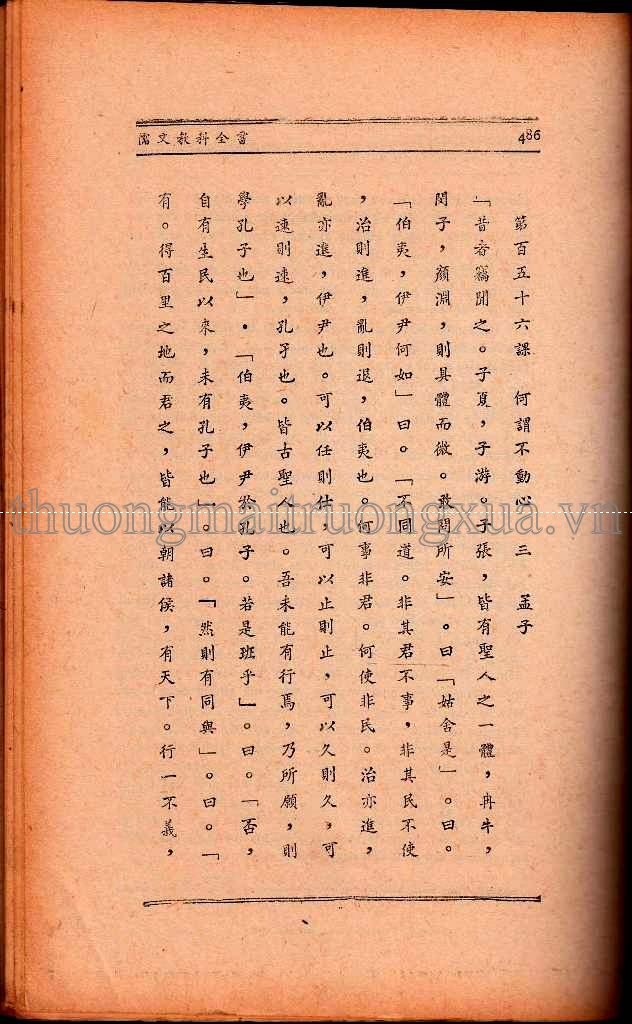 儒文教科全書
486
第百五十六課 何謂不動心 三 孟子
「昔者竊聞之。子夏，子游。子張，皆有聖人之一體，冉牛，
閔子，顏淵，則具體而微。敢問所安」。曰「姑舍是」。曰。
「伯夷，伊尹何如」曰。「不同道。非其君不事，非其民不使
，治則進，亂則退，伯夷也。何事非君。何使非民。治亦進，
亂亦進，伊尹也。可以任則仕，可以止則止，可以久則久，可
以速則速，孔子也。皆古聖人也。吾未能有行焉，乃所願，則
學孔子也」．「伯夷，伊尹於孔子。若是班乎」。曰。「否，
自有生民以來，未有孔子也」。曰。「然則有同與」。曰。「
有。得百里之地而君之，皆能以朝諸侯，有天下。行一不義，
thuongmaitruongxua.vn